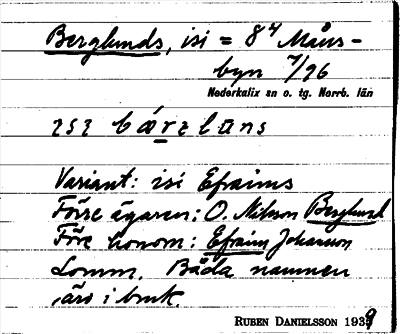 Berglunds, isi = 8⁴ Måns-
byn 7/96
Nederkalix sn o. tg. Norrb. län
ɪsɪ bárɀlɯns
Variant: isi Efraims
Förre ägaren: O. Nilsson Berglund
Före honom: Efraim Johansson
Lomm. Båda namnen
äro i bruk.
RUBEN DANIELSSON 1939